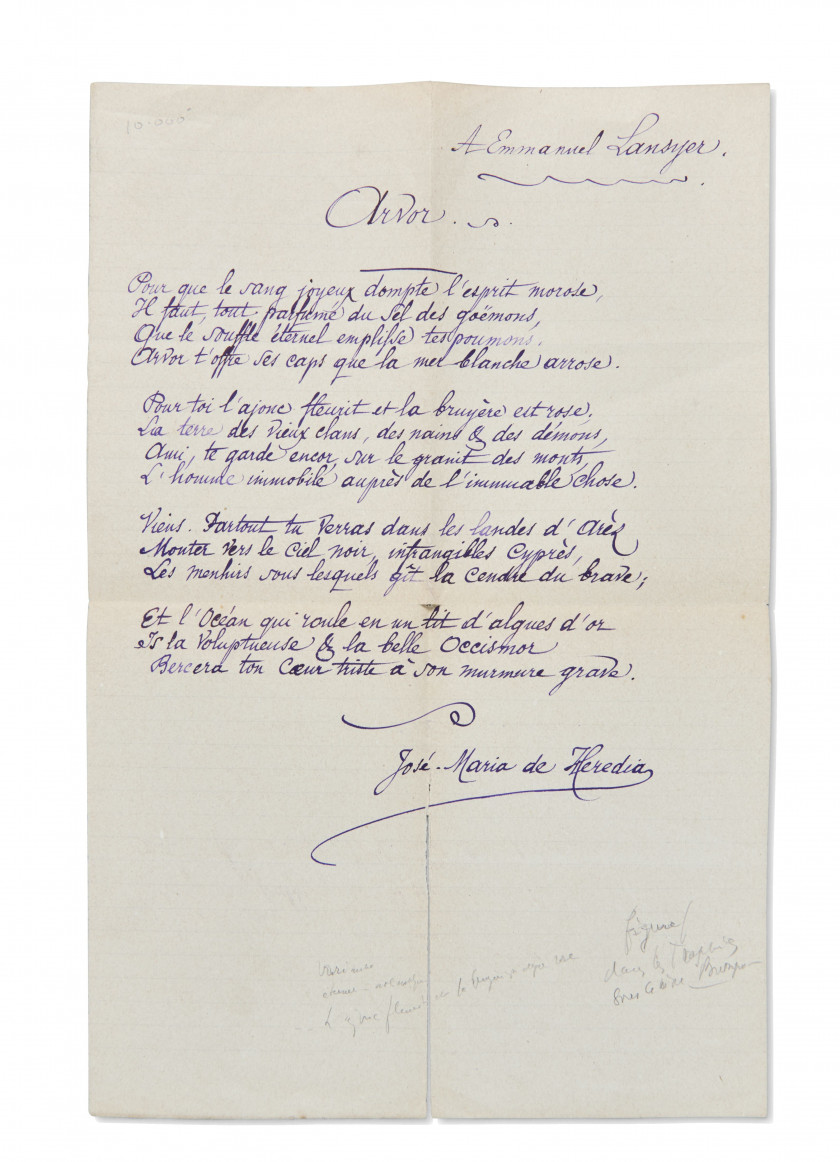 10.000
A Emmanuel Lansyer.
Arvor.
Pour que le sang joyeux dompte l'esprit morose,
Il faut, tout parfumé du sel des goëmons,
Que le souffle éternel emplisse tes poumons.
Arvor t'offre ses caps que la mer blanche arrose.
Pour toi l'ajonc fleurit et la bruyère est rose.
La terre des vieux clans, des nains & des démons,
Ami, te garde encor, sur le granit des monts,
L'homme immobile auprès de l'immuable chose.
Viens. Partout tu verras dans les landes d'Arèz
Monter vers le ciel noir, infrangibles Cyprès,
Les menhirs sous lesquels gît la cendre du brave;
Et l'Océan qui roule en un lit d'algues d'or
Is la Voluptueuse & la belle Occismor
Bercera ton Cœur triste à son murmure grave.
José-Maria de Heredia
figure
dans les Trophées
sous le titre Bretagne
variantes
L'ajonc fleurit